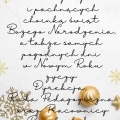 i pachnących
choinką świąt
Bożego Narodzenia,
a także samych
pogodnych dni
w Nowym Roku
życzy
Dyrekcja,
Rada Pedagogiczna
Pracownicy